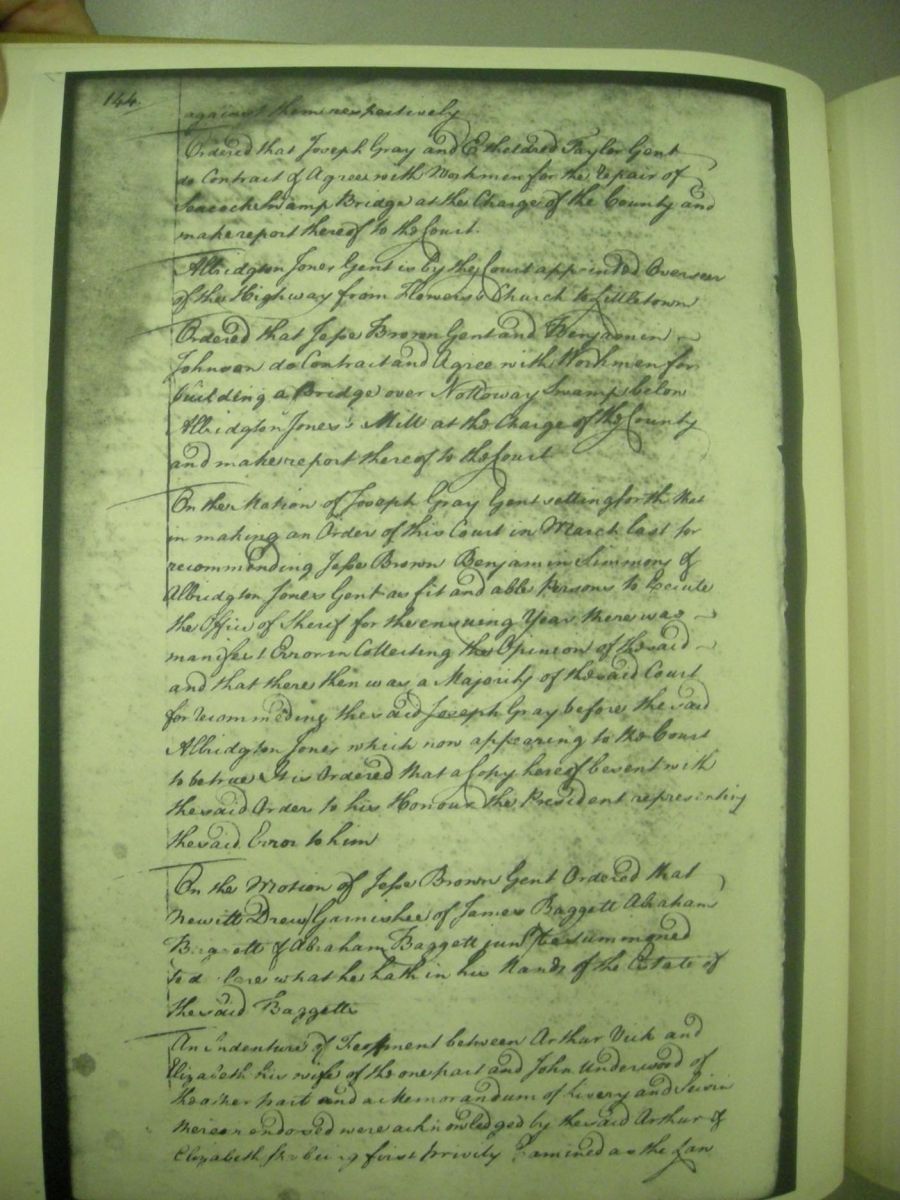 144.
against them respectively
Ordered that Joseph Gray and Etheldred Taylor Gent
do Contract & Agree with Workmen for the repair of
Seacock Swamp Bridge at the Charge of the County and
make report thereof to the Court.
Albridgton Jones Gent is by the Court appointed Overseer
of the Highway from Flowers's Church to Littletown
Ordered that Jesse Brown Gent and Benjamin
Johnson do Contract and Agree with Workmen for
building a Bridge over Nottoway Swamp below
Albridgton Jones's Mill at the Charge of the County
and make report thereof to the Court
On the Motion of Joseph Gray Gent setting forth that
in making an Order of this Court in March last for
recommending Jesse Brown Benjamin Simmons &
Albridgton Jones Gent as fit and able Persons to Execute
the Office of Sherif for the ensuing Year there was
manifest Error in Collecting the Opinion of the said
and that there then was a Majority of the said Court
for recommending the said Joseph Gray before the said
Albridgton Jones which now appearing to the Court
to be true It is Ordered that a Copy hereof be sent with
the said Order to his Honour the President representing
the said Error to him
On the Motion of Jesse Brown Gent Ordered that
Newitt Drew Garnishee of James Baggett Abraham
Baggett & Abraham Baggett junr be summoned
to declare what he hath in his Hands of the Estate of
the said Baggetts
An Indenture of Feoffment between Arthur Vick and
Elizabeth his wife of the one part and John Underwood of
the other part and a Memorandum of Livery and Seisin
thereon endorsed were acknowledged by the said Arthur &
Elizabeth she being first Privily Examined as the Law